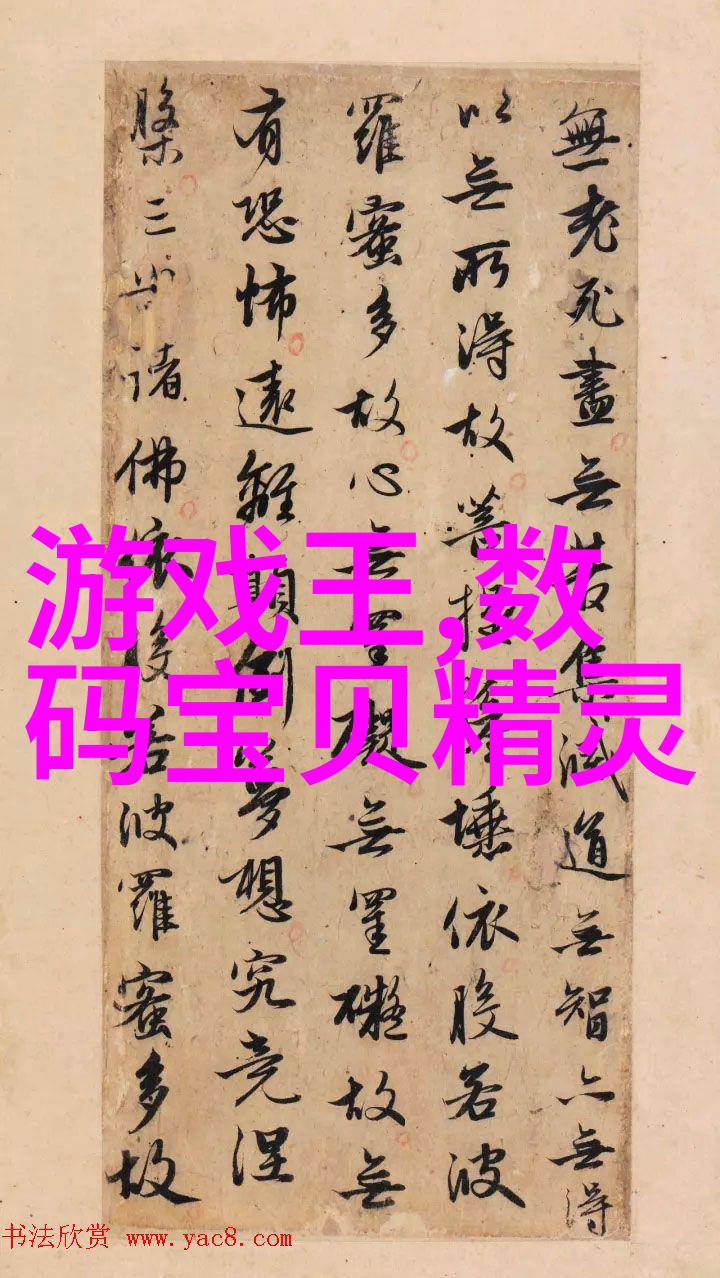 無老死盡無苦集滅道無智亦無得
以無所得故菩提薩埵依般若波
羅蜜多故心無罣礙無罣礙故無
有恐怖遠離顛倒夢想究竟涅
槃三世諸佛依般若波羅蜜多故
游戏王,数
码宝贝精灵
书法欣赏 www.yac8.com